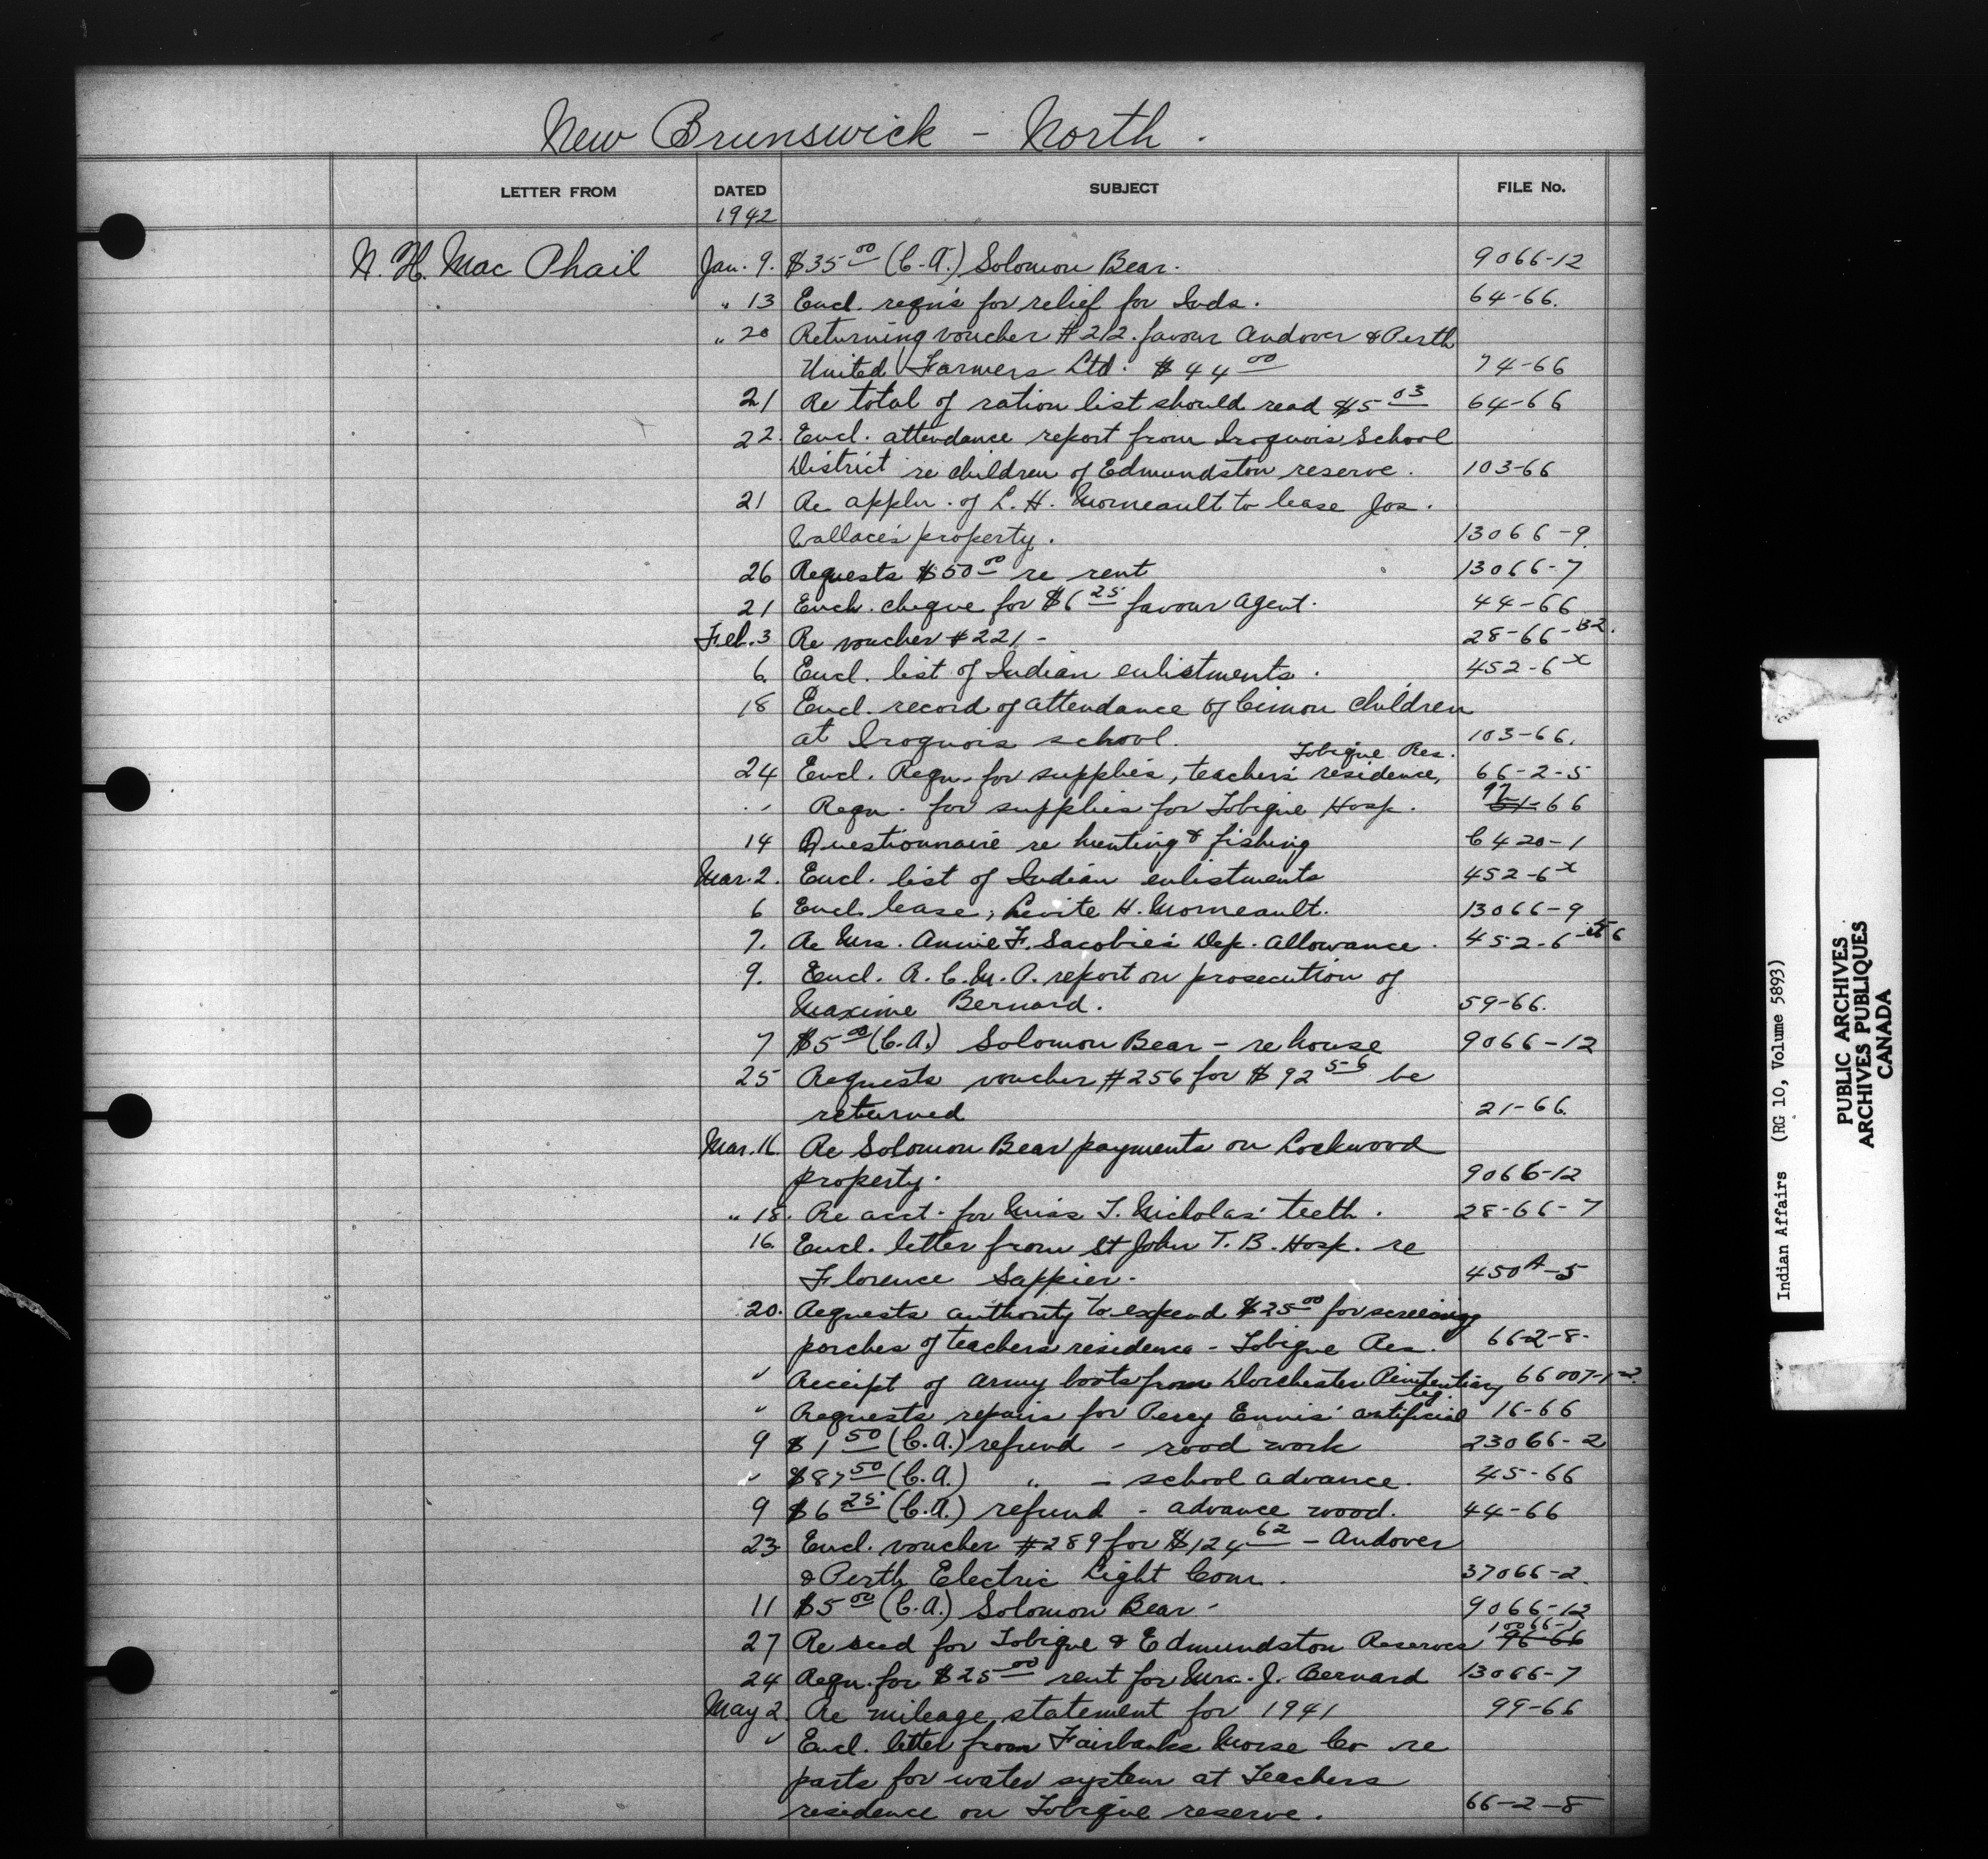 New Brunswick - North.
LETTER FROM DATED SUBJECT FILE No.
1942
N. H. Mac Phail Jan. 9. $35.00 (C.A.) Solomon Bear. 9066-12
" 13 Encl. reqn's for relief for Inds. 64-66.
" 20 Returning voucher #212. favour Andover & Perth
United Farmers Ltd. $44.00 74-66
21 Re total of ration list should read $5.03 64-66
22. Encl. attendance report from Iroquois School
District re children of Edmundston reserve. 103-66
21 Re appln. of L. H. Morneault to lease Jos.
Wallace's property. 13066-9
26 Requests $50.00 re rent 13066-7
21 Ench. cheque for $6.25 favour agent. 44-66
Feb. 3 Re voucher #221- 28-66-B2.
6. Encl. list of Indian enlistments. 452-6x
18 Encl. record of attendance of Cimon children
at Iroquois school. 103-66.
Tobique Res.
24 Encl. Reqn. for supplies, teacher's residence, 66-2-5
" Reqn. for supplies for Tobique Hosp. 92-66
14 Questionnaire re hunting & fishing C6420-1
Mar. 2. Encl. list of Indian enlistments 452-6x
6 Encl. lease, Levite H. Morneault. 13066-9
7. Re Mrs. Annie F. Sacobie's Dep. allowance. 452-6
9. Encl. R.C.M.P. report on prosecution of
Maxime Bernard. 59-66.
7 $5.00 (C.A.) Solomon Bear - re house 9066-12
25 Requests voucher #256 for $92.56 be
returned 21-66.
Mar. 16. Re Solomon Bear payments on Lockwood
property. 9066-12
" 18. Re acct. for Miss T. Nicholas' teeth. 28-66-7
16. Encl. letter from St John T.B. Hosp. re
Florence Sappier. 450A-5
20. Requests authority to expend $25.00 for screening
porches of teachers residence - Tobique Res. 66-2-8-
" Receipt of army boots from Dorchester Penitentiary 66007-1-2
leg.
" Requests repairs for Percy Ennis' artificial 16-66
9 $1.50 (C.A.) refund - road work 23066-2
" $87.50 (C.A.) " - school advance. 45-66
9 $6.25 (C.A.) refund - advance wood. 44-66
23. Encl. voucher #289 for $124.62 - Andover
& Perth Electric Light Com. 37066-2.
11 $5.00 (C.A.) Solomon Bear- 9066-12
10066-1
27 Re seed for Tobique & Edmundston Reserves 96-66
24 Reqn. for $25.00 rent for Mrs. J. Bernard 13066-7
May 2. Re mileage statement for 1941 99-66
" Encl. letter from Fairbanks Morse Co re
parts for water system at Teachers
residence on Tobique reserve. 66-2-8
Indian Affairs (RG 10, Volume 5893)
PUBLIC ARCHIVES
ARCHIVES PUBLIQUES
CANADA